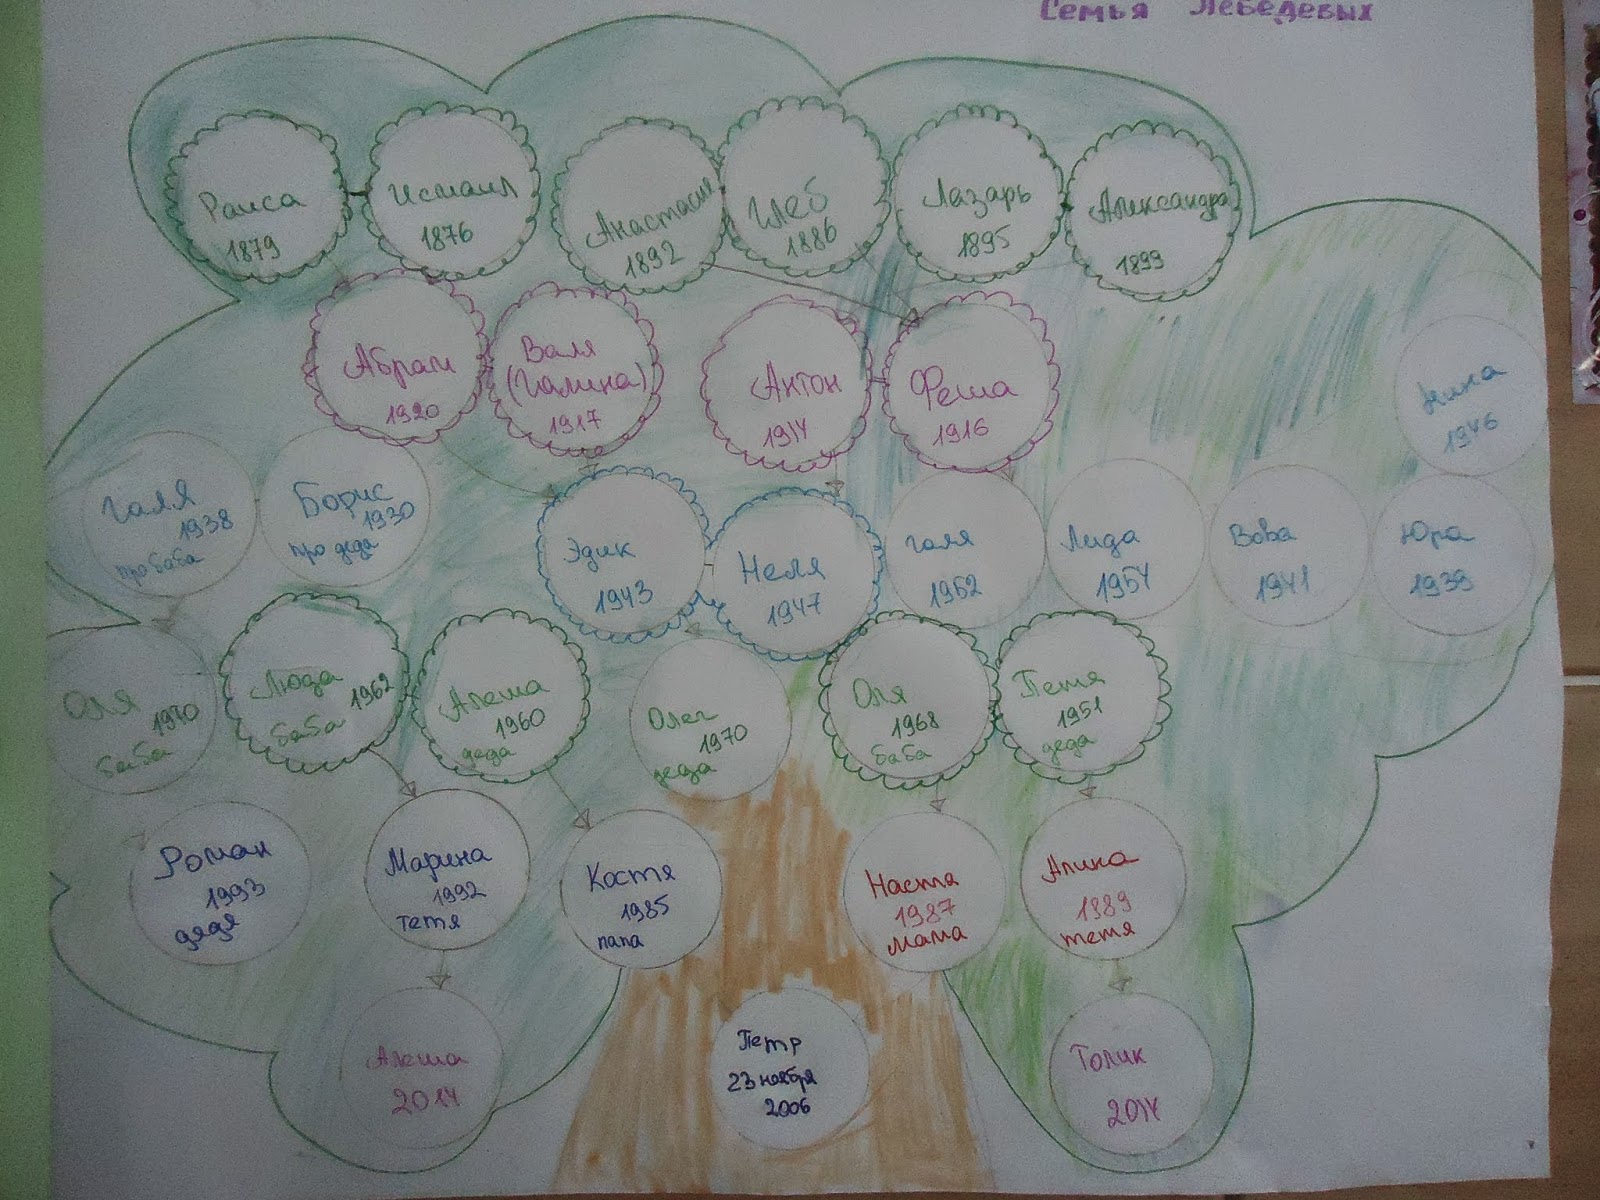 Семья Лебедевых
Раиса
1879
Исмаил
1876
Анастасия
1892
Глеб
1886
Лазарь
1895
Александра
1899
Абрам
1920
Валя
(Галина)
1917
Антон
1914
Феша
1916
1946
Галя
1938
пробаба
Борис
1930
продеда
Эдик
1943
Неля
1947
Галя
1952
Лида
1954
Вова
1941
Юра
1939
Оля
1940
баба
Люда
1962
баба
Алеша
1960
деда
Олег
1970
деда
Оля
1968
баба
Петя
1951
деда
Роман
1993
дядя
Марина
1992
тетя
Костя
1985
папа
Настя
1987
мама
Алина
1989
тетя
Алеша
2014
Петр
23 ноября
2006
Толик
2014